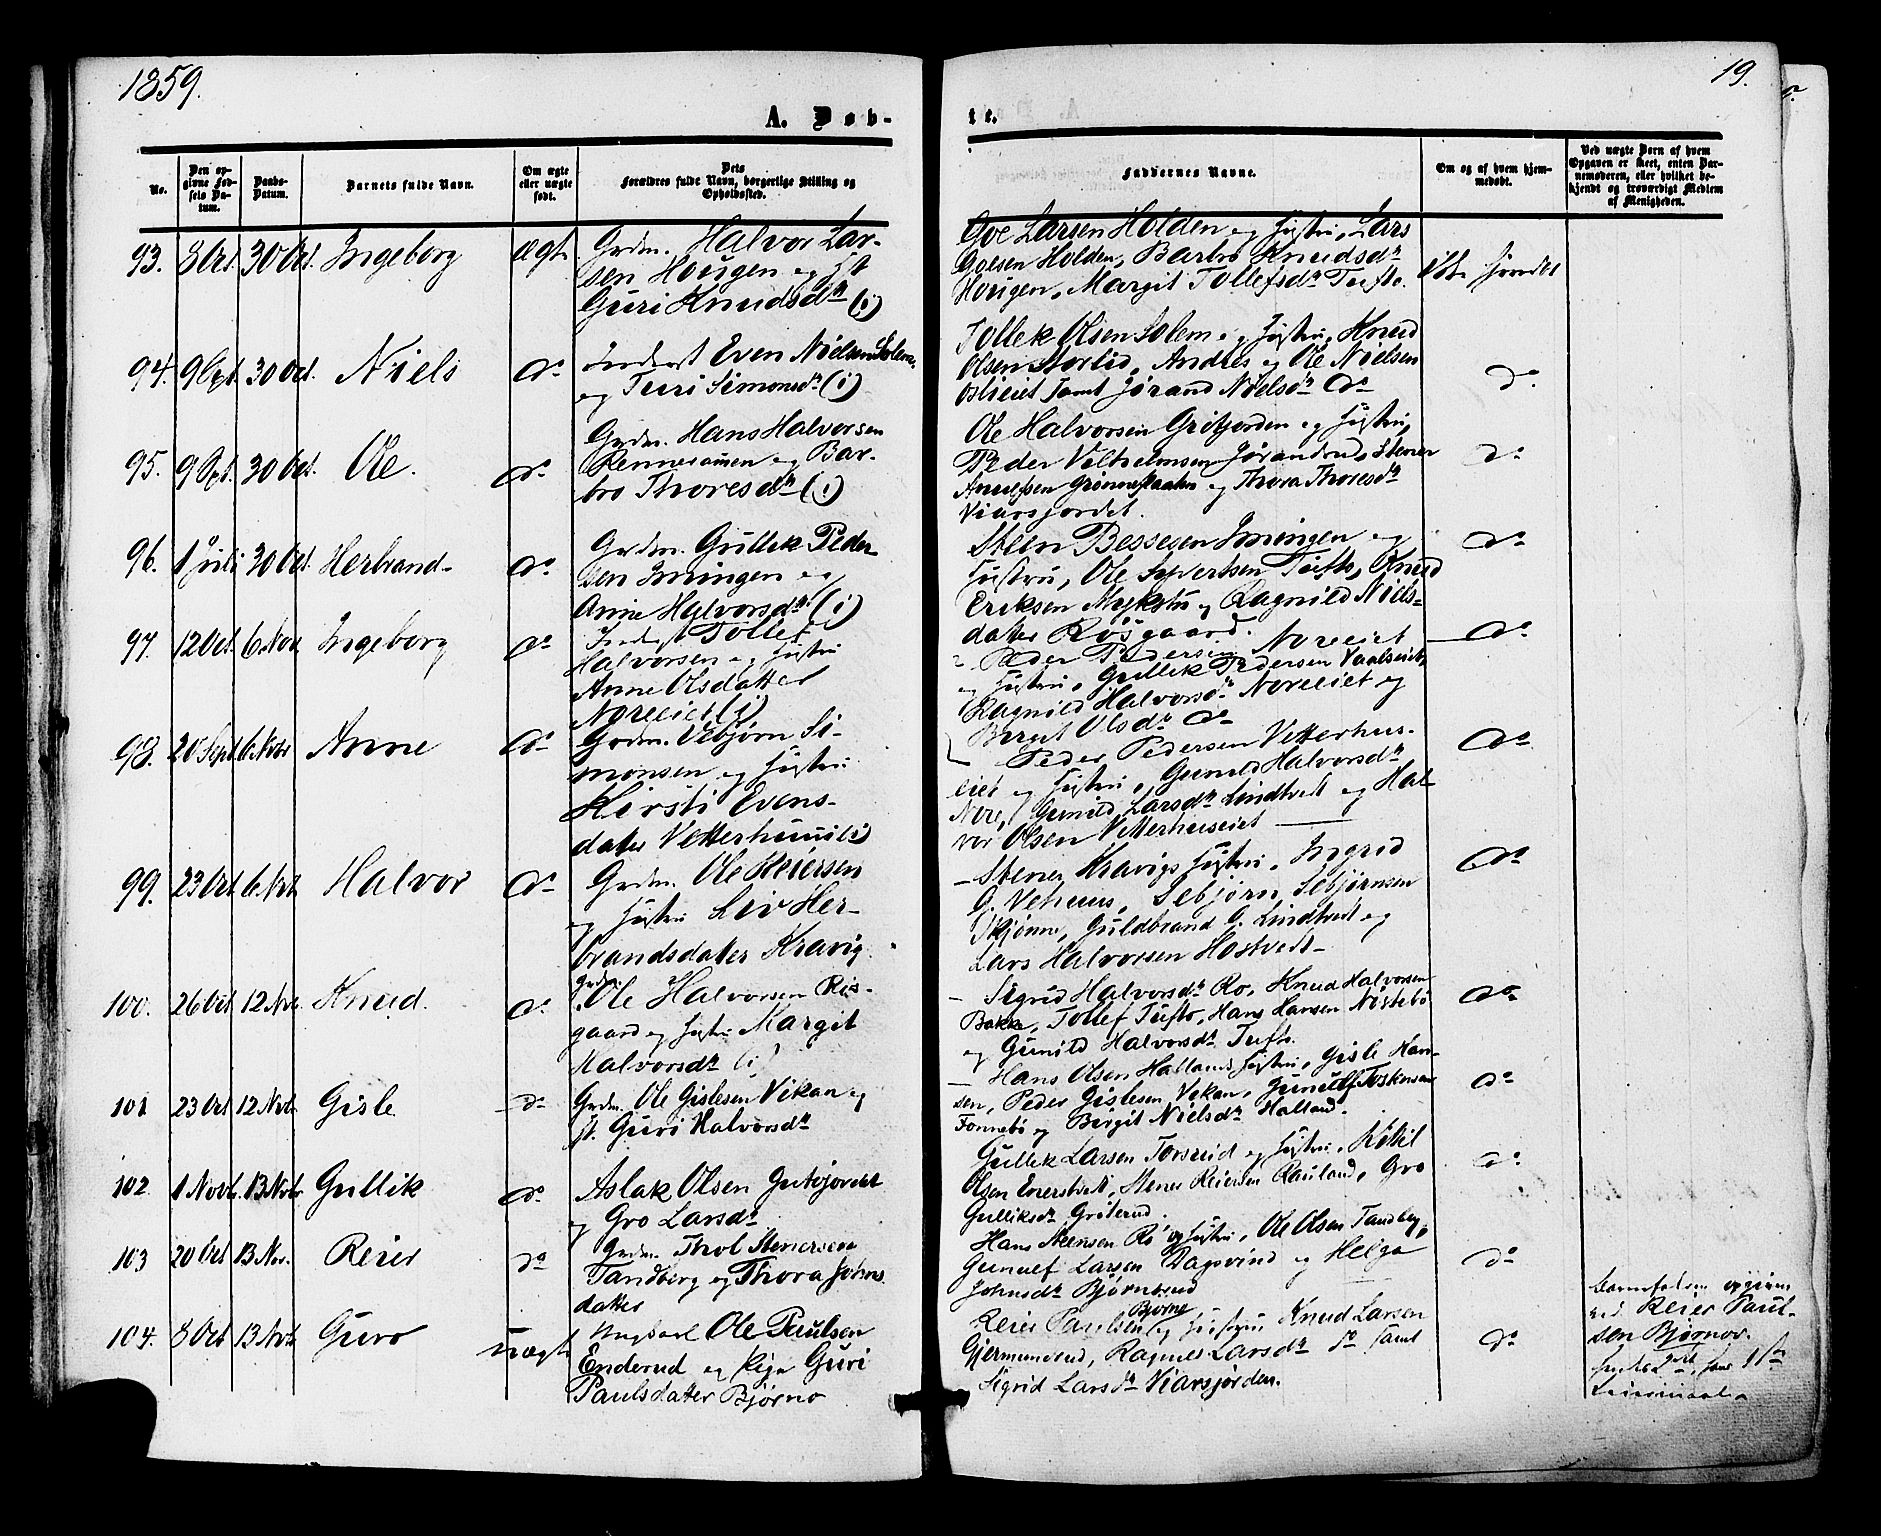 1859.
19.
A. Døb-
te.
No.
Den op-
givne Fød-
sels Da-
tum.
Daabs-
Datum.
Barnets fulde Navn.
Om ægte
eller uægte
født.
Dets
Forældres fulde Navn, borgerlige Stilling og
Opholdssted.
Faddernes Navne.
Om og af hvem hjem-
medøbt.
Ved uægte Born af hvem
Opgaven er skeet, enten Bar-
nemoderen, eller hvilket be-
kjendt og troværdigt Medlem
af Menigheden.
93. 8 Oct. 30 Oct. Ingeborg ægte
Grdm. Halvor Lar-
sen Hougen og H
Guri Knudsdr (i)
Goe Larsen Holden og Hustru, Lars
Goesen Holden, Barbro Knudsdr
Hougen, Margit Tollefsdr Tufto.
94. 30 Oct. Niels do
Inderst Even Nielsen Solem
og Turi Simonsdr (i)
Tollek Olsen Solem og Hustru, Knud
Olsen Storlid, Andres og Ole Nielsen
Oslieiet samt Jørand Nielsdr do
do
95. 30 Oct. Ole. do
Grdm. Hans Halvorsen
Renneramen og Bar-
bro Thoresdr (i)
Ole Halvorsen Gritjorden og Hustru,
Peder Vilhelmsen Jørandrud, Stener
Anulfsen Grønneflaaten og Thora Thoresdr
Viarsjordet.
do
96. 1 Juli 30 Oct. Herbrand do
Grdm. Gullek Peder-
sen Imingen og
Anne Halvorsdr (i)
Steen Bessesen Imingen og
Hustru, Ole Syvertsen Tufto, Knud
Eriksen Mykstu og Ragnild Niels-
datter Røsgaard.
do
97. 12 Oct. 6 Nov Ingeborg do
Inderst Tollef
Halvorsen og Hustru
Anne Olsdatter
Noreeiet (i)
Peder Pedersen Noreeiet
og Hustru, Gullek Pedersen Vaalseiet,
Ragnild Halvorsdr Noreeiet og
Bergit Olsdr do
do
98. 20 Sept. 6 Nov Anne do
Grdm. Vebjørn Si-
monsen og Hustru
Kirsti Evens-
datter Vetterhuus (i)
Peder Pedersen Vetterhus-
eiet og Hustru, Gunild Halvorsdr
Nore, Gunild Larsdr Lindtvedt og Hal-
vor Olsen Vetterhuseiet
do
99. 23 Oct. 6 Nov. Halvor do
Grdm. Ole Reiersen
og Hustru Liv Her-
brandsdatter Kravig.
Stener Kravigs Hustru, Ingrid
G. Vehuus, Sebjørn Sebjørnsen
Skjønne, Guldbrand G. Lindtvedt og
Lars Halvorsen Hostvedt
do
100. 26 Oct. 12 Nov. Knud. do
Grdm.
Ole Halvorsen Røs-
gaard og Hustru Margit
Halvorsdr (i)
Sigrid Halvorsdr Ro, Knud Halvorsen
Bakka, Tollef Tufto, Hans Hansen Nøstebø
og Gunild Halvorsdr Tufto.
do
101 23 Oct 12 Nov. Gisle do
Grdm. Ole Gislesen Vikan og
H. Guri Halvorsdr
Hans Olsen Hallands Hustru, Gisle Han-
sen, Peder Gislesen Vekan, Gunulf Torkensen
Fonnebø og Birgit Nielsdr Halland.
do
102 1 Novb. 13 Novbr. Gullik do
Aslak Olsen Gutejordet
og Gro Larsdr
Gullek Larsen Torsrud og Hustru, Ketil
Olsen Enerstvedt, Stener Reiersen Rauland, Gro
Gulliksdr Griterud.
do
103 20 Oct 13 Nov. Reier do
Grdm. Thol Stenersen
Tandberg og Thora Johns-
datter
Hans Steensen Ro og Hustru, Ole Olsen Tandberg,
Gunulf Larsen Dagsvind og Helga
Johnsdr Bjørnerud
do
104. 8 Oct 13 Nov. Guro Uægte
Ungkarl Ole Paulsen
Enderud og Pige Guri
Paulsdatter Bjørno
Reier Paulsen Bjørno og Hustru, Knud Larsen
Gjermundrud, Ragne Larsdr do samt
Sigrid Larsdr Viarsjorden.
do
Barnefaderen opgiven
ved Reier Paul-
sen Bjørnov.
Leiermaal